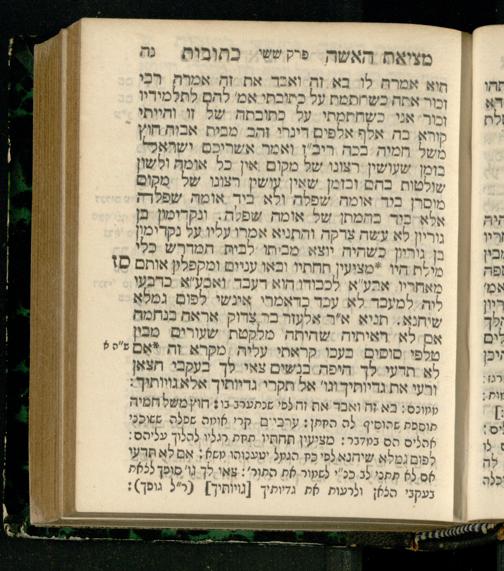 מציאת האשה פרק ששי כתובות נה
הוא אמרה לו בא זה ואבד את זה אמרה רבי
זכור אתה כשחתמת על כתובתי אמ' להם לתלמידיו
זכור אני כשחתמתי על כתובתה של זו והייתי
קורא בה אלף אלפים דינרי זהב מבית אביה חוץ
משל חמיה בכה ריב"ז ואמר אשריכם ישראל
בזמן שעושין רצונו של מקום אין כל אומה ולשון
שולטות בהם ובזמן שאין עושין רצונו של מקום
מוסרן ביד אומה שפלה ולא ביד אומה שפלה
אלא ביד בהמתן של אומה שפלה. ונקדימון בן
גוריון לא עשה צדקה והתניא אמרו עליו על נקדימון
בן גוריון כשהיה יוצא מביתו לבית המדרש כלי
מילת היו *מציעין תחתיו ובאו עניים ומקפלין אותם סז
מאחריו אבע"א לכבודו הוא דעבד ואבע"א כדבעי
ליה למעבד לא עבד כדאמרי אינשי לפום גמלא
שיחנא. תניא א"ר אלעזר בר צדוק אראה בנחמה
אם לא ראיתיה שהיתה מלקטת שעורים מבין
טלפי סוסים בעכו קראתי עליה מקרא זה *אם ש"ה א
לא תדעי לך היפה בנשים צאי לך בעקבי הצאן
ורעי את גדיותיך וגו' אל תקרי גדיותיך אלא גוויותיך:
ממונם: בא זה ואבד את זה לפי שנתערב בו: חוץ משל חמיה
תוספת שהוסיף לה החתן: ערביים קרי אומה שפלה ששוכני
אהלים הם במדבר: מציעין תחתיו תחת רגליו להלוך עליהם:
לפום גמלא שיחנא לפי כח הגמל יטענוהו משא: אם לא תדעי
אם לא תתני לב כנ"י לשמור את התור': צאי לך גו' סופך לצאת
בעקבי הצאן ולרעות את גדיותיך [גויותיך] (ר"ל גופך):